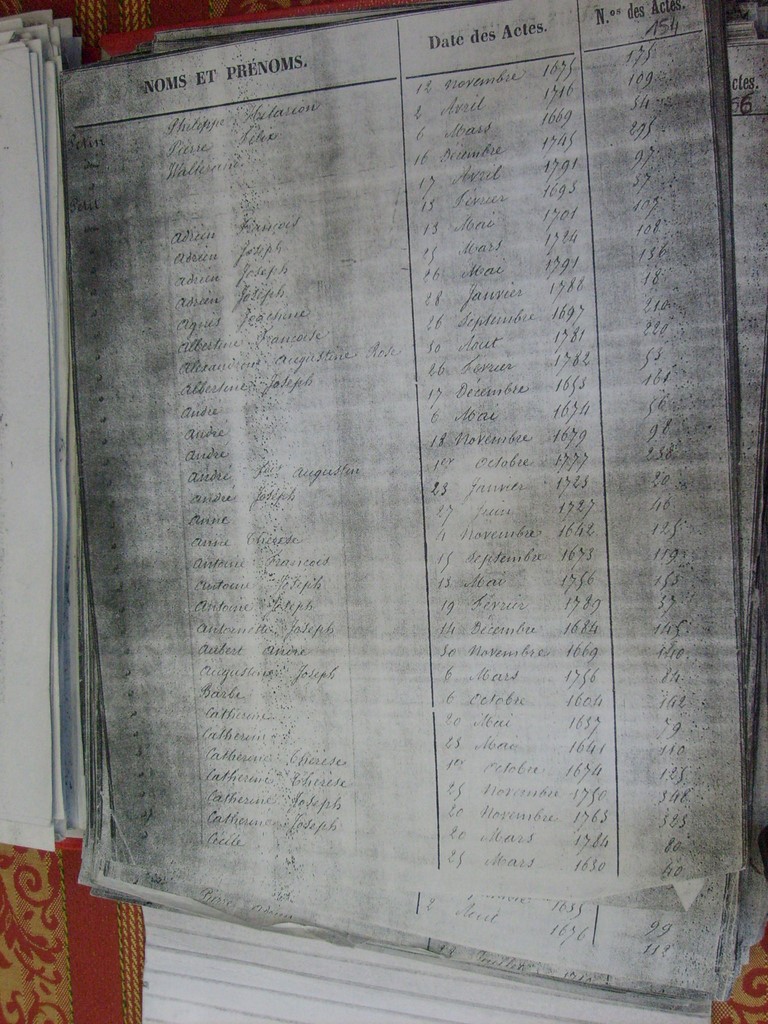 NOMS ET PRÉNOMS.
Philippe Hilarion
Pierre Félix
Petit
Adrien François
Adrien Joseph
Adrien Joseph
Adrien Joseph
Agnès Joachine
Albertine Françoise
Alexandrine Augustine Rose
Albertine Joseph
André
André
André
André Augustin
André Joseph
Anne
Anne Thérèse
Antoine François
Antoine Joseph
Antoine Joseph
Antoinette Joseph
Aubert André
Augustine Joseph
Barbe
Catherine
Catherine
Catherine Thérèse
Catherine Thérèse
Catherine Joseph
Catherine Joseph
Cécile
Date des Actes.
12 Novembre 1675
2 Avril 1716
6 Mars 1669
16 Décembre 1745
17 Avril 1791
13 Février 1693
13 Mai 1701
25 Mars 1724
26 Mai 1791
28 Janvier 1788
26 Septembre 1697
30 Aout 1781
26 Février 1782
17 Décembre 1653
6 Mai 1674
18 Novembre 1679
1er Octobre 1777
23 Janvier 1723
27 Juin 1727
4 Novembre 1642
15 Septembre 1673
13 Mai 1756
19 Février 1789
14 Décembre 1684
30 Novembre 1669
6 Mars 1756
6 Octobre 1604
20 Mai 1637
23 Mai 1641
1er Octobre 1674
25 Novembre 1750
20 Novembre 1763
20 Mars 1784
25 Mars 1630
N.os des Actes.
154
175
109
54
295
97
37
107
108
156
18
210
220
53
161
56
98
238
20
46
125
119
153
57
145
140
84
142
79
110
125
348
385
80
40
1655
2 Avril 1676
99
112
Juillet
Actes.
56